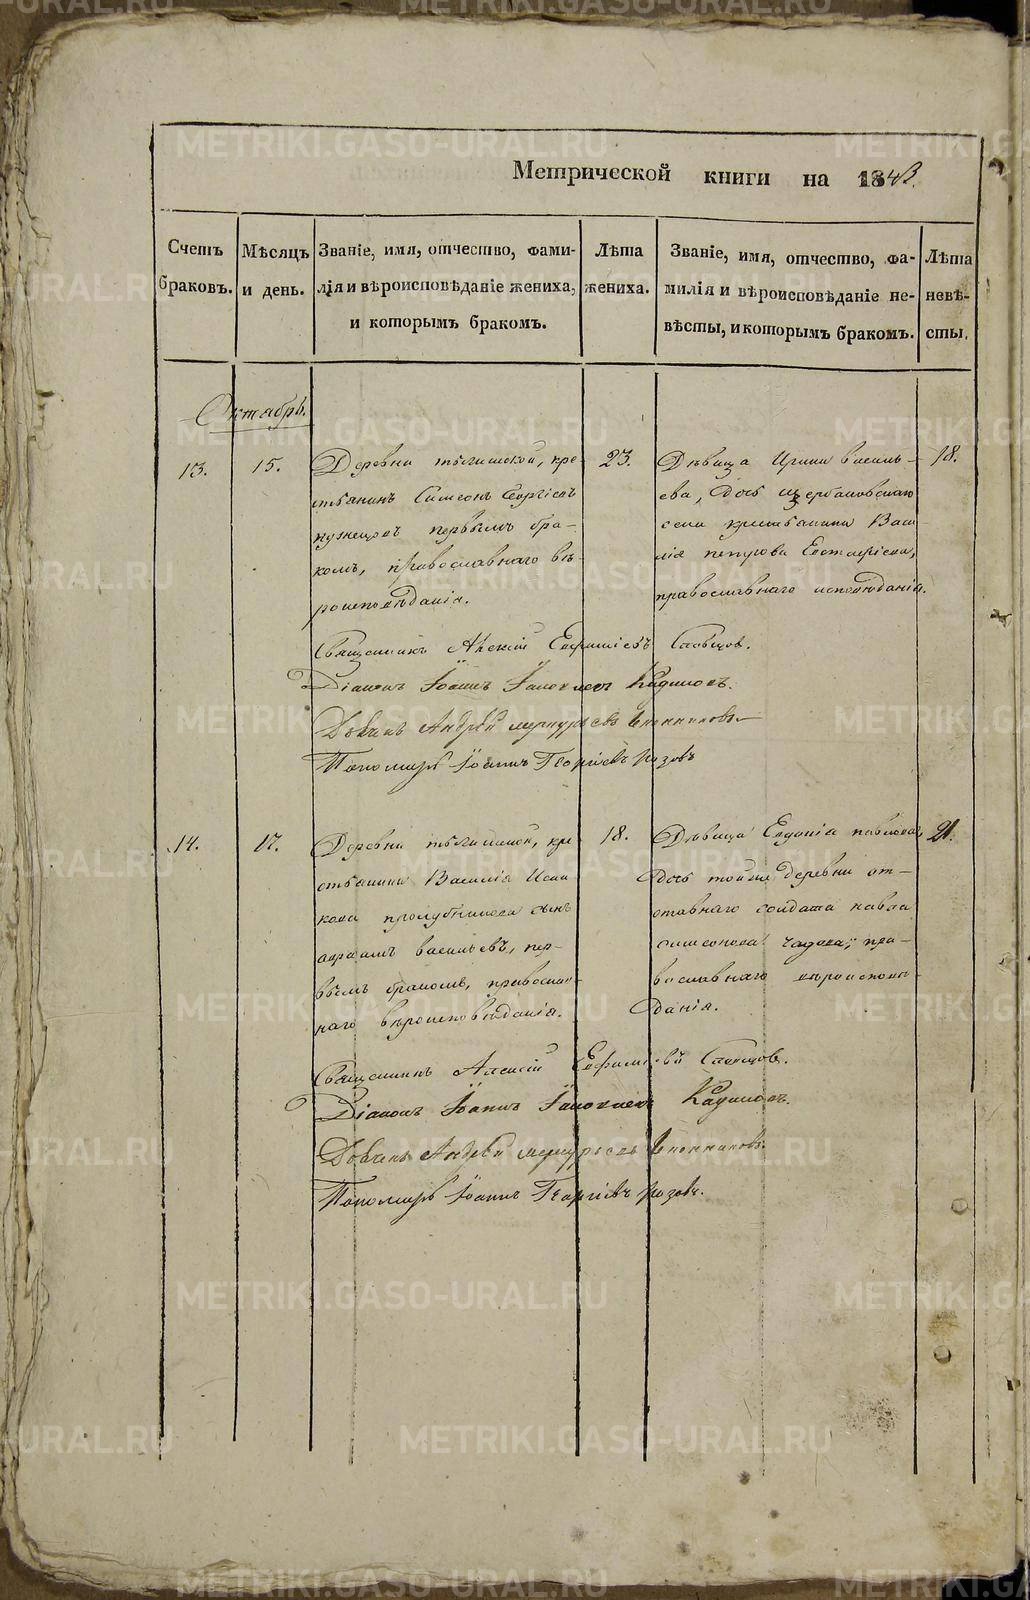 Метрической книги на 1843.
Счетъ браковъ.
Мѣсяцъ и день.
Званіе, имя, отчество, фами-
лія и вѣроисповѣданіе жениха,
и которымъ бракомъ.
Лѣта жениха.
Званіе, имя, отчество, фа-
милія и вѣроисповѣданіе не-
вѣсты, и которымъ бракомъ.
Лѣта невѣ-
сты.
Октябрь.
13.
15.
Деревни кре-
стьянинъ Симеонъ Георгіевъ
кузнецовъ первымъ бра-
комъ, православнаго вѣ-
роисповѣданія.
23.
Дѣвица Ирина василь-
ева, дочь щербаковскаго
села крестьянина Васи
лія петрова
православнаго исповѣданія.
18.
Священникъ Алексій Евфиміевъ Словцов.
Діаконъ Іоаннъ Іаковлевъ Кадиловъ.
Дьячекъ Андрей меркурьевъ
Пономарь Іоаннъ Георгіевъ
14.
17.
Деревни кре
стьянина Василія Исаа
кова сынъ
авраамъ васильевъ, пер-
вымъ бракомъ, православ-
наго вѣроисповѣданія.
18.
Дѣвица Евдокія павлова,
дочь тойже деревни от-
ставнаго солдата павла
симеонова пра-
вославнаго вѣроисповѣ-
данія.
21.
Священникъ Алексій Евфиміевъ Словцовъ.
Діаконъ Іоаннъ Іаковлевъ Кадиловъ.
Дьячекъ Андрей меркурьевъ
Пономарь Іоаннъ Георгіевъ
METRIKI.GASO-URAL.RU